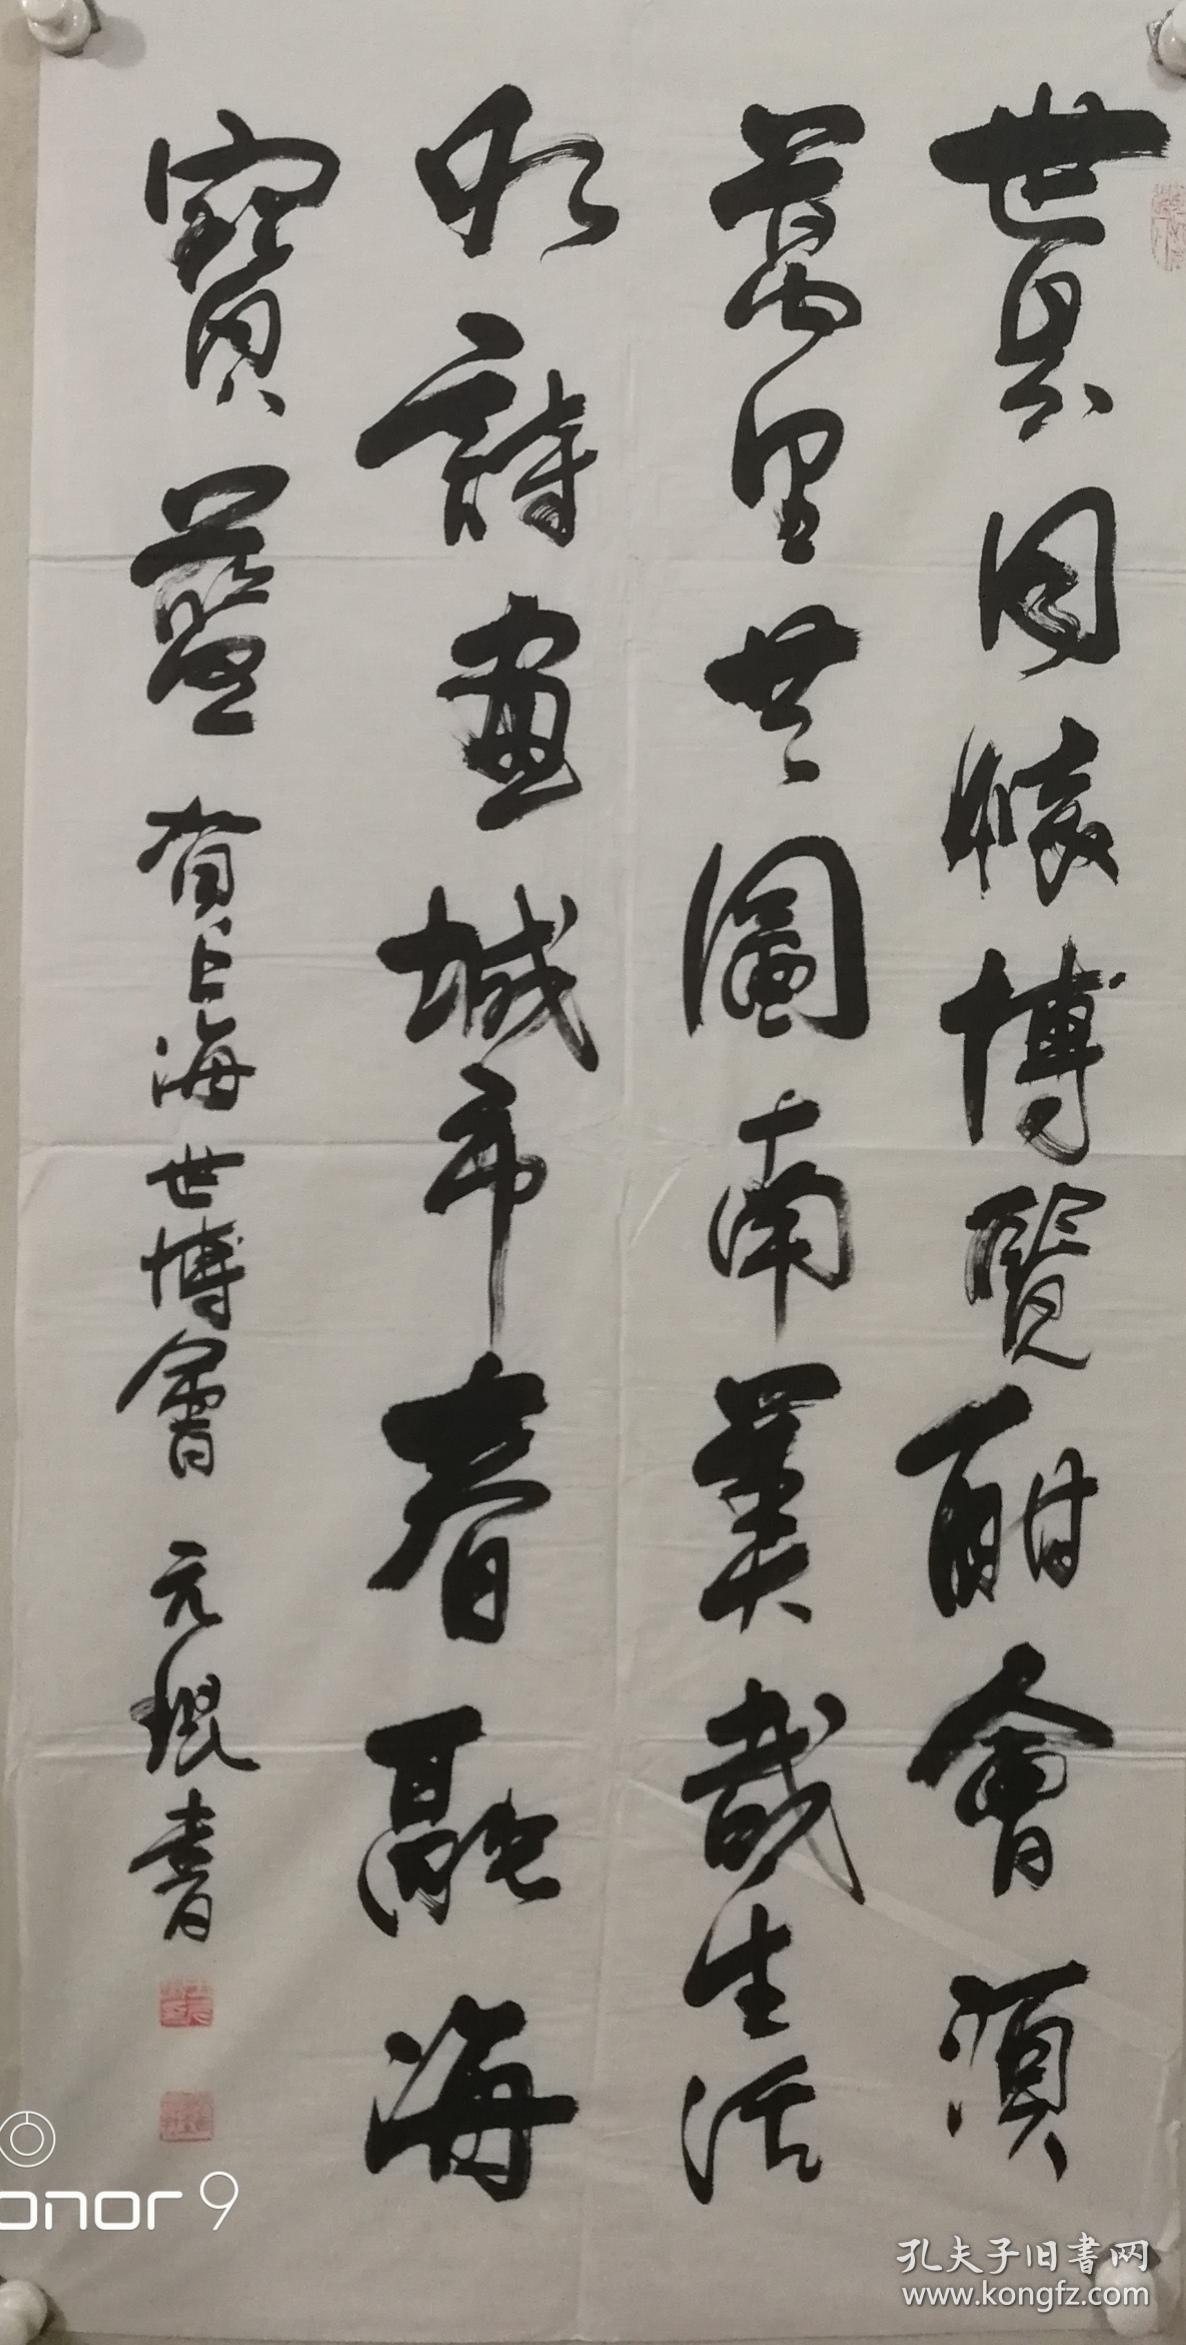 世界因緣博覽酣會須
萬里共圖南美哉生活
如詩畫城市春融海
寶藍 賀上海世博會 元琨書
honor 9
孔夫子旧书网
www.kongfz.com